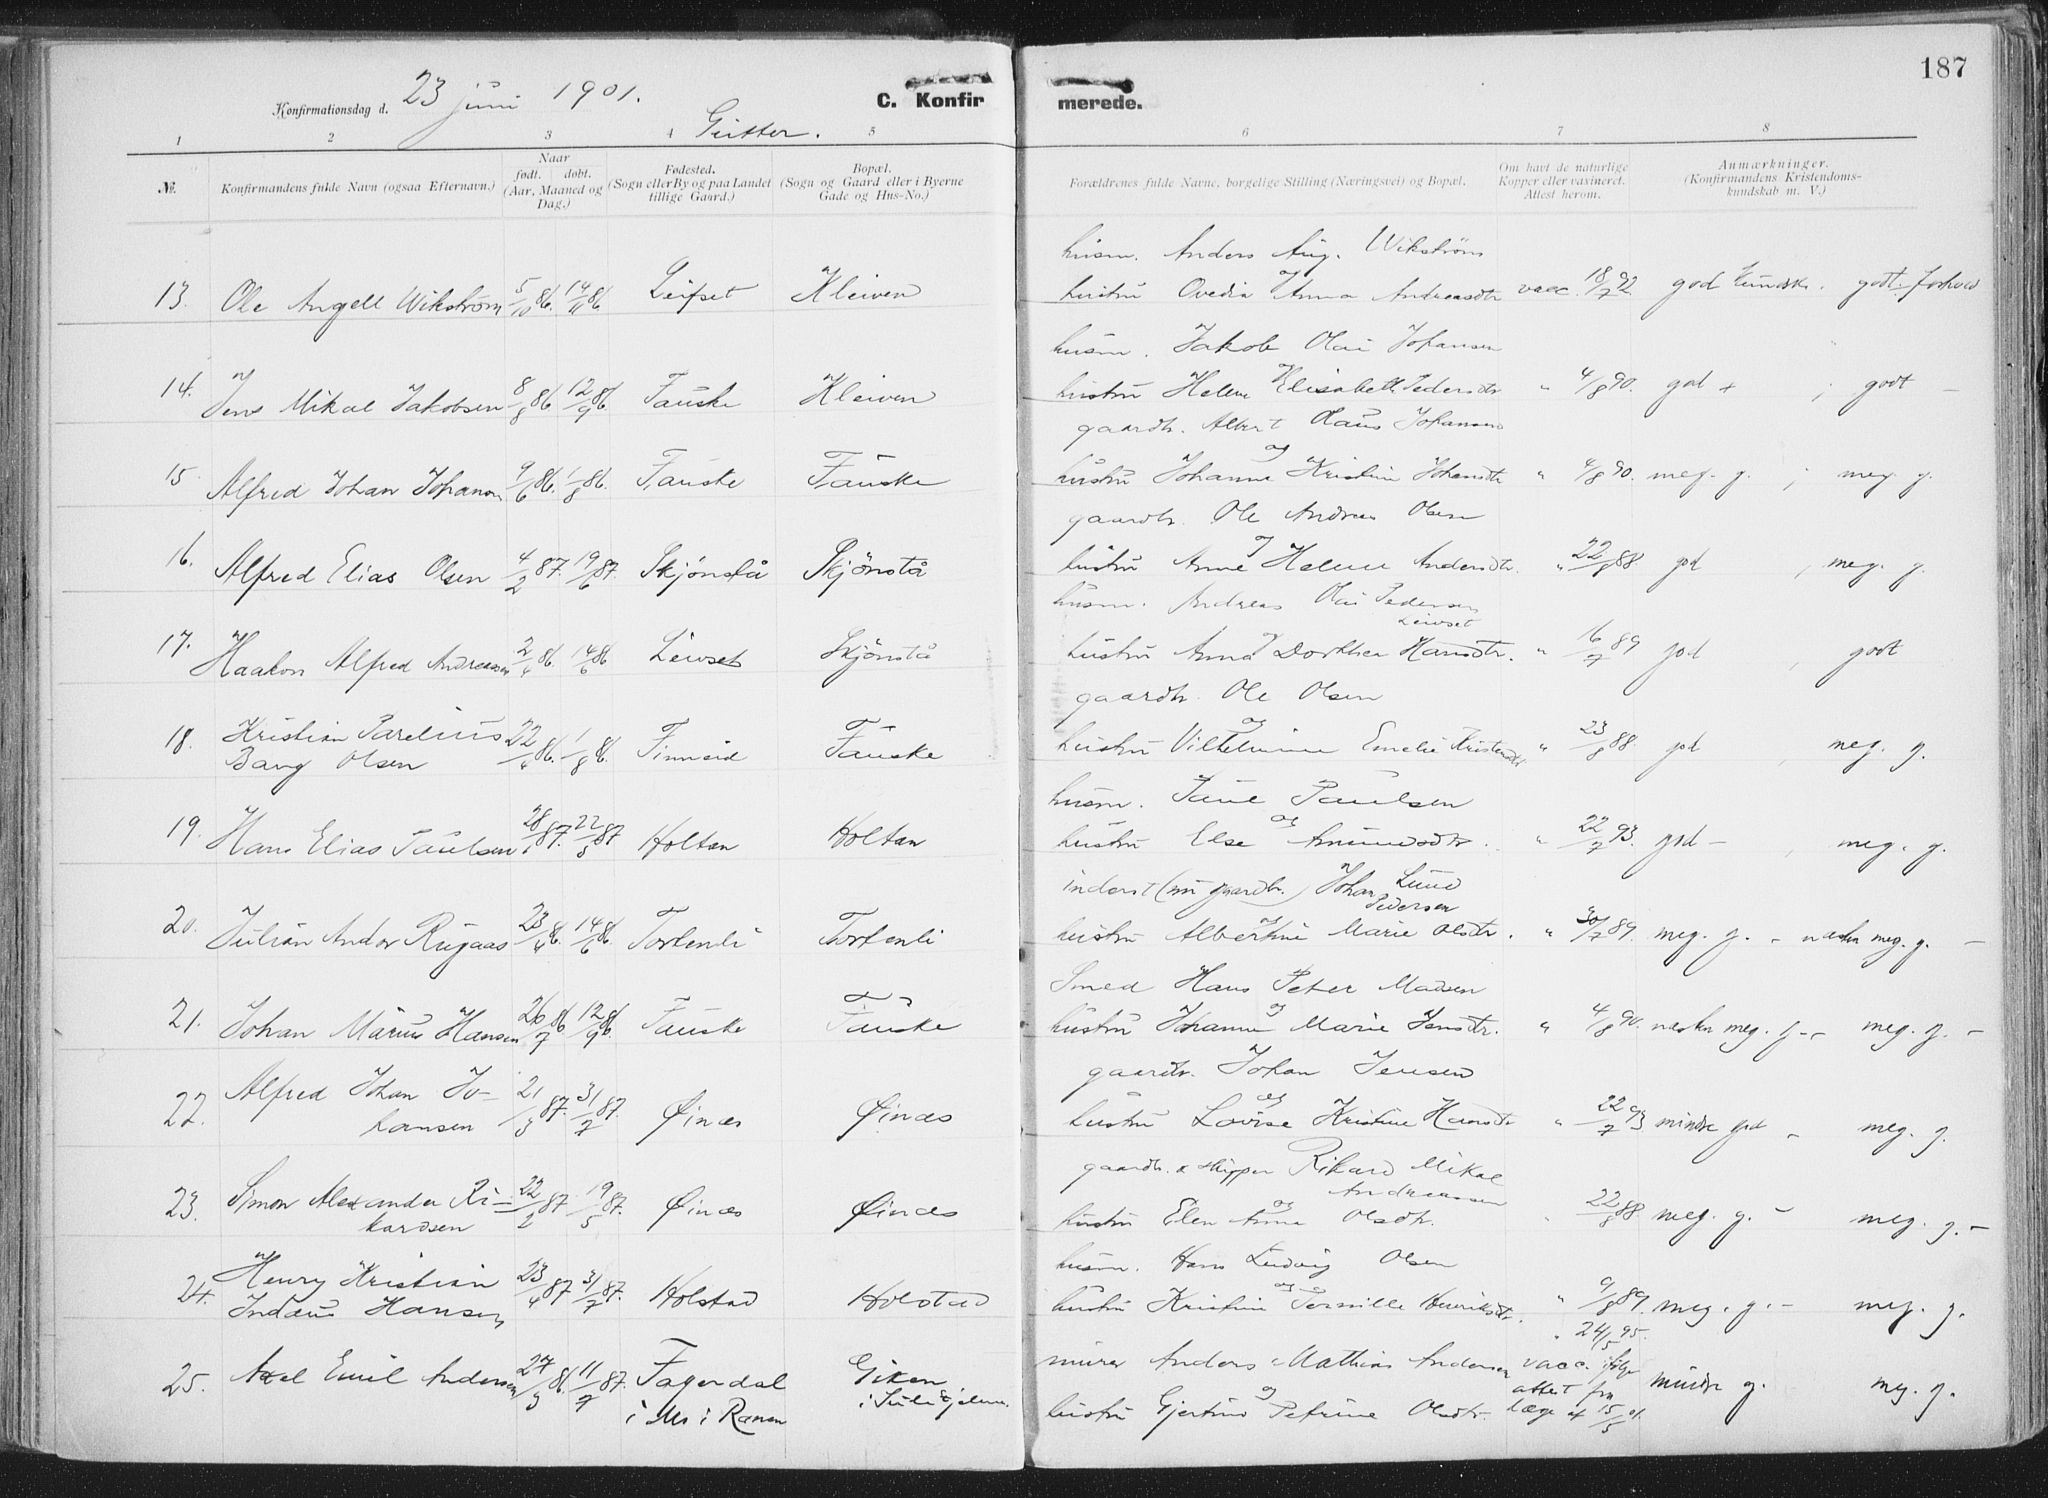 187
Konfirmationsdag d. 23 juni 1901.
C. Konfir merede.
Gutter.
1 2 3 4 5 6 7 8
№. Konfirmandens fulde Navn (ogsaa Efternavn.) Naar født. døbt. (Aar, Maaned og Dag.) Fødested. (Sogn eller By og paa Landet tillige Gaard.) Bopæl. (Sogn og Gaard eller i Byerne Gade og Hus-No.) Forældrenes fulde Navne, borgelige Stilling (Næringsvei) og Bopæl. Om havt de naturlige Kopper eller vaxineret. Attest herom. Anmærkninger. (Konfirmandens Kristendomskundskab m. V.)
husm. Anders Aug. Wikström
13. Ole Angell Wikström 5/10 86. 14/11 86. Leifset Kleiven og hustru Ovedia Anna Andreasdtr vacc. 18/7 92. god kundsk. godt forhold
husm. Jakob Olai Johansen
14. Jens Mikal Jakobsen 8/8 86 12/9 86 Fauske Kleiven og hustru Helene Elisabeth Pedersdtr " 4/8 90. god ; godt -
gaardbr. Albert Olaus Johansen
15 Alfred Johan Johansen 9/6 86. 1/8 86. Fauske Fauske og hustru Johanna Kristine Johansdtr " 4/8 90. meg. g. ; meg. g.
gaardbr. Ole Andreas Olsen
16. Alfred Elias Olsen 4/2 87. 19/6 87. Skjønstå Skjönstå og hustru Anne Helene Andersdtr. " 22/8 88 god , meg. g.
husm. Andreas Olai Pedersen Leivset
17. Haakon Alfred Andreassen 2/4 86. 14/6 86 Leivset Skjönstå og hustru Anna Dorthea Hansdtr. " 16/7 89 god , godt
gaardbr. Ole Olsen
18. Kristian Parelius Bang Olsen 22/6 86. 1/8 86. Finneid Fauske og hustru Vilhelmine Emelie Kristensdtr " 23/8 88. god , meg. g.
husm. Paul Paulsen
19. Hans Elias Paulsen 28/1 87. 22/5 87 Holtan Holtan og hustru Else Amundsdtr. " 22/7 93. god - , meg. g.
inderst (nu gaardbr.) Johan Lund Pedersen
20. Julian Andor Rugaas 23/4 86. 14/6 86. Tortenli Tortenli og hustru Albertine Marie Olsdtr. " 30/7 89. meg. g. - næsten meg. g. -
Smed Hans Peter Madsen
21. Johan Marius Hansen 26/7 86. 12/9 86. Fauske Fauske og hustru Johanna Marie Jensdtr. " 4/8 90. næsten meg. g. - meg. g. -
gaardbr. Johan Jensen
22. Alfred Johan Johansen 21/3 87. 31/7 87. Øinæs Øinæs og hustru Lovise Kristine Hansdtr " 22/7 93 mindre god - meg. g.
gaardbr. & skipper Rikard Mikal Andreassen
23. Simon Alexander Rikardsen 22/2 87. 19/5 87. Øinæs Øinæs og hustru Elen Anna Olsdtr. " 22/8 88. meg. g. - meg. g. -
husm. Hans Ludvig Olsen
24. Henry Kristian Indaus Hansen 23/4 87 31/7 87. Holstad Holstad og hustru Kristine Pernille Henriksdtr. " 9/8 89. meg. g. - meg. g.
" 24/5 95.
25. Axel Emil Andersen 27/3 86. 11/7 87. Fagerdal i Mo i Ranen Giken i Sulitjelma. murer Anders Mathias Andersen og hustru Gjertine Petrine Olsdtr. vacc. ifølge attest fra læge af 15/5 01. mindre g. meg. g.